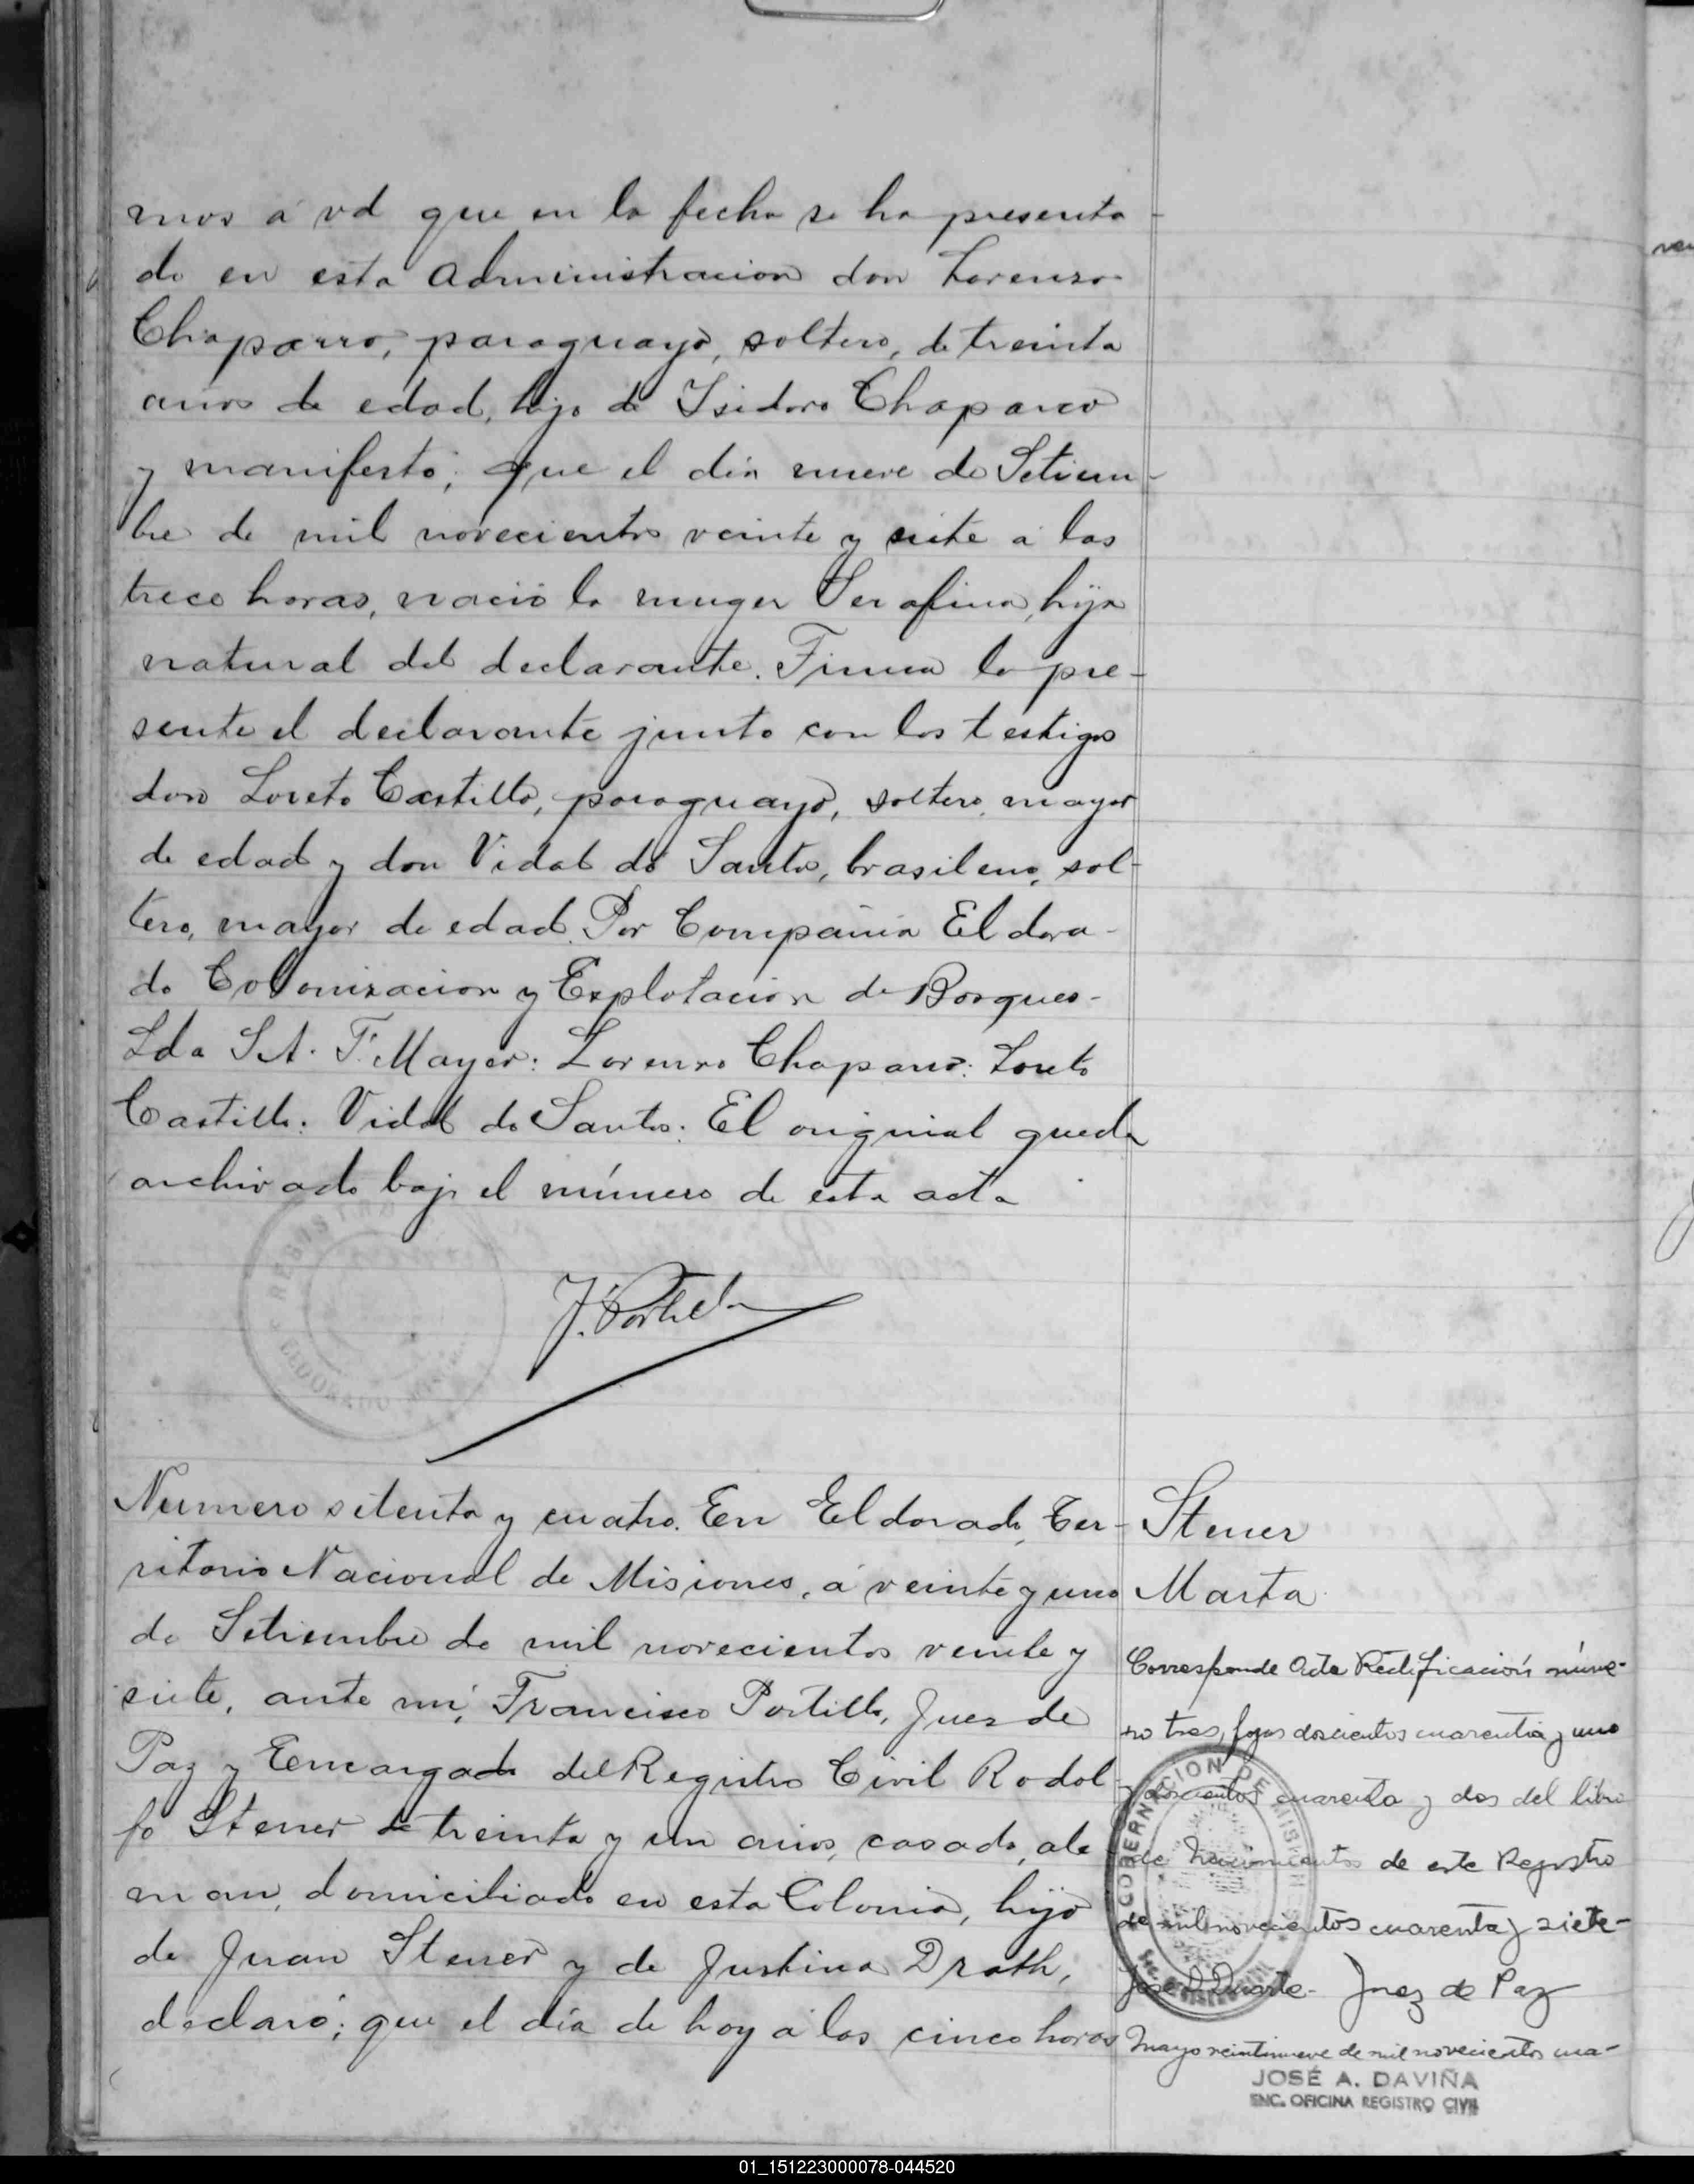 mos á vd que en la fecha se ha presenta-
do en esta Administracion don Lorenzo
Chaparro, paraguayo, soltero, de treinta
años de edad, hijo de Isidoro Chaparro
y manifestó; que el dia nueve de Setiem-
bre de mil novecientos veinte y siete a las
trece horas, nació la muger Serafina, hija
natural del declarante. Firma la pre-
sente el declarante junto con los testigos
don Loreto Castillo, paraguayo, soltero, mayor
de edad y don Vidal do Santo, brasileno, sol-
tero, mayor de edad. Por Compañia Eldora-
do Colonizacion y Explotacion de Bosques-
Lda S.A. F. Mayer: Lorenzo Chaparro: Loreto
Castillo: Vidal do Santos: El original queda
archivado bajo el número de esta acta
J. Portillo
Numero setenta y cuatro. En Eldorado, Ter-
ritorio Nacional de Misiones, á veinte y uno
de Setiembre de mil novecientos veinte y
siete, ante mi, Francisco Portillo, Juez de
Paz y Encargado del Registro Civil Rodol-
fo Stener de treinta y un años, casado, ale-
man, domiciliado en esta Colonia, hijo
de Juan Stener y de Justina Drath,
declaró; que el dia de hoy a las cinco horas
Stener
Marta
Corresponde Acta Rectificación núme-
ro tres, fojas doscientos cuarenta y uno
y doscientos cuarenta y dos del libro
de Nacimientos de este Registro
de mil novecientos cuarenta y siete-
José D. Duarte- Juez de Paz
Mayo veintinueve de mil novecientos cua-
GOBERNACION DE MISIONES
JOSÉ A. DAVIÑA
ENC. OFICINA REGISTRO CIVIL
01_151223000078-044520